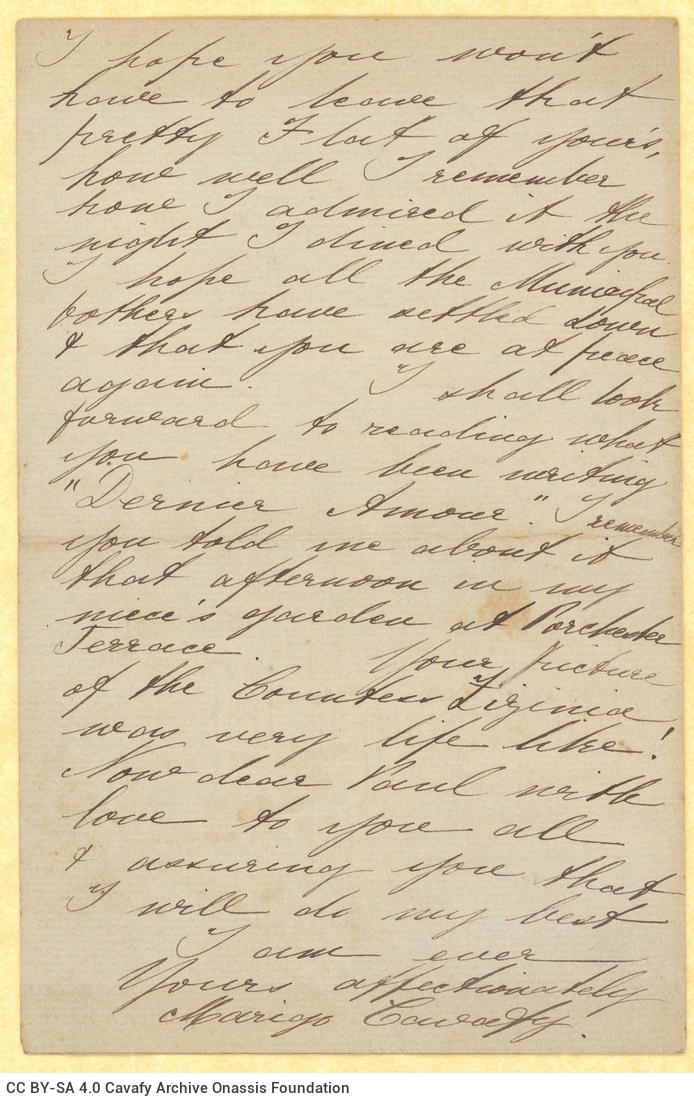 I hope you won't
have to leave that
pretty Flat of your's,
how well I remember
how I admired it the
night I dined with you.
I hope all the Municipal
bothers have settled down
& that you are at peace
again. I shall look
forward to reading what
you have been writing
"Dernier Amour." I remember
you told me about it
that afternoon in my
niece's garden at Porchester
Terrace. Your picture
of the Countess Zizinia
was very life like!
Now dear Paul with
love to you all
& assuring you that
I will do my best
I am ever
Yours affectionately
Marigo Cavafy.
CC BY-SA 4.0 Cavafy Archive Onassis Foundation